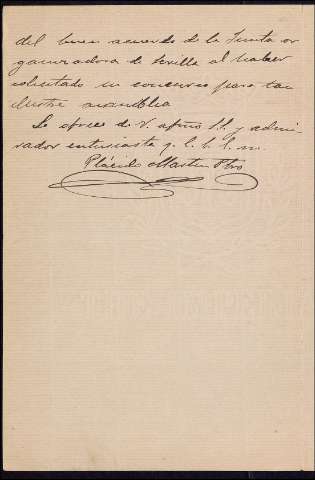 del buen acuerdo de la Junta or
ganizadora de Sevilla al haber
solicitado su concurso para tan
ilustre asamblea
Se ofrece de V. afmo S.S. y admi
rador entusiasta q. l. b. l. m.
Plácido Martin Pbro